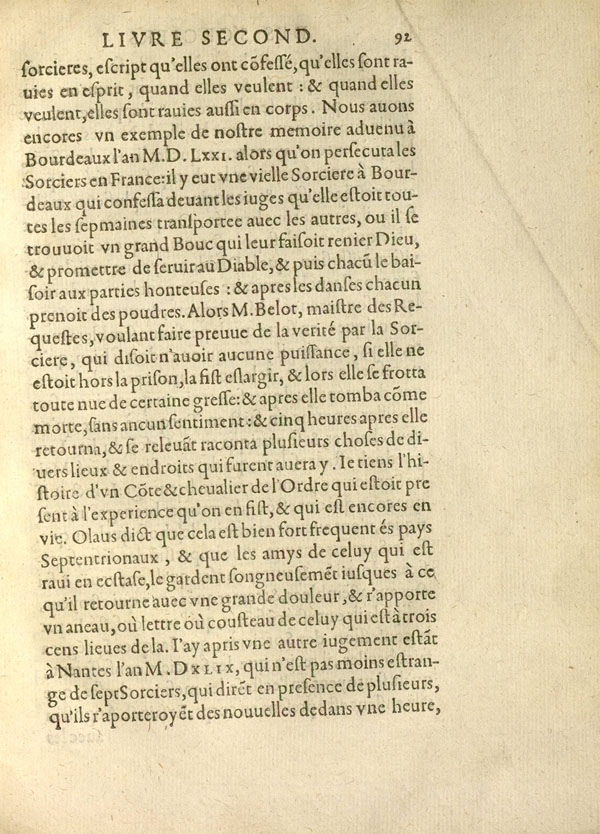 LIVRE SECOND. 92
ſorcieres, eſcript qu'elles ont cõfeſſé, qu'elles ſont ra-
uies en eſprit, quand elles veulent : & quand elles
veulent, elles ſont rauies auſſi en corps. Nous auons
encores vn exemple de noſtre memoire aduenu à
Bourdeaux l'an M.D.LXXI. alors qu'on perſecuta les
Sorciers en France: il y eut vne vielle Sorciere à Bour-
deaux qui confeſſa deuant les iuges qu'elle eſtoit tou-
tes les ſepmaines tranſportee auec les autres, ou il ſe
trouuoit vn grand Bouc qui leur faiſoit renier Dieu,
& promettre de ſeruir au Diable, & puis chacũ le bai-
ſoir aux parties honteuſes : & apres les danſes chacun
prenoit des poudres. Alors M. Belot, maiſtre des Re-
queſtes, voulant faire preuue de la verité par la Sor-
ciere, qui diſoit n'auoir aucune puiſſance, ſi elle ne
eſtoit hors la priſon, la fiſt eſlargir, & lors elle ſe frotta
toute nue de certaine greſſe: & apres elle tomba cõme
morte, ſans aucun ſentiment : & cinq heures apres elle
retourna, & ſe releuãt raconta pluſieurs choſes de di-
uers lieux & endroits qui furent auera y. Ie tiens l'hi-
ſtoire d'vn Cõte & cheualier de l'Ordre qui eſtoit pre
ſent à l'experience qu'on en fiſt, & qui eſt encores en
vie. Olaus dict que cela eſt bien fort frequent és pays
Septentrionaux, & que les amys de celuy qui eſt
raui en ecstaſe, le gardent ſongneuſemẽt iuſques à ce
qu'il retourne auec vne grande douleur, & r'apporte
vn aneau, où lettre où couſteau de celuy qui eſt à trois
cens lieues de la. I'ay apris vne autre iugement eſtãt
à Nantes l'an M.DXLIX, qui n'eſt pas moins eſtran-
ge de ſept Sorciers, qui dirẽt en preſence de pluſieurs,
qu'ils r'aporteroyẽt des nouuelles dedans vne heure,